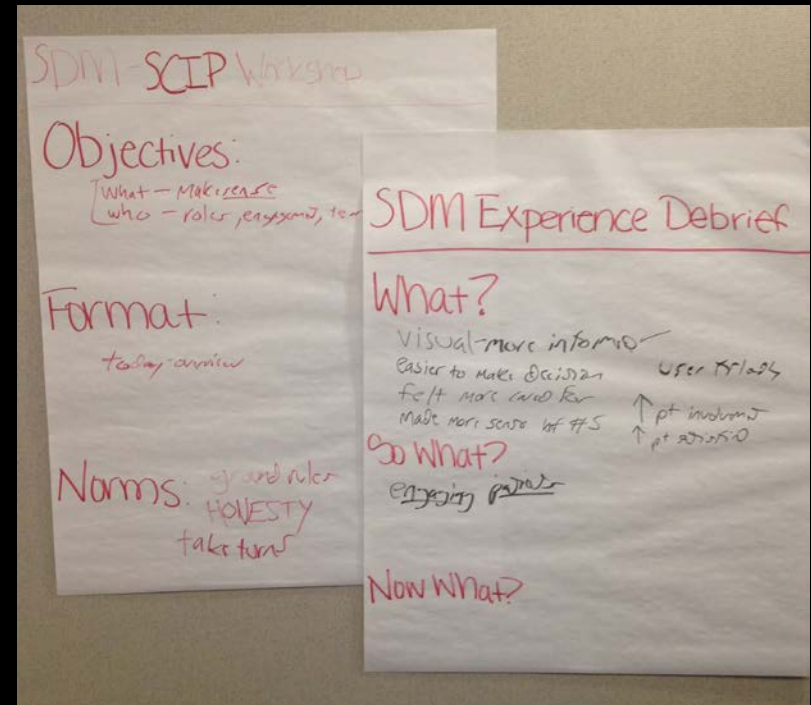 SDM - SCIP Workshop
Objectives:
What - Make sense
who - roles, engagement,
Format:
today - overview
Norms: ground rules
HONESTY
take turns
SDM Experience Debrief
What?
Visual - more
easier to make decision
felt more cared for
made more sense of #S
user friendly
↑ pt
↑ pt
So What?
engaging patients
Now What?